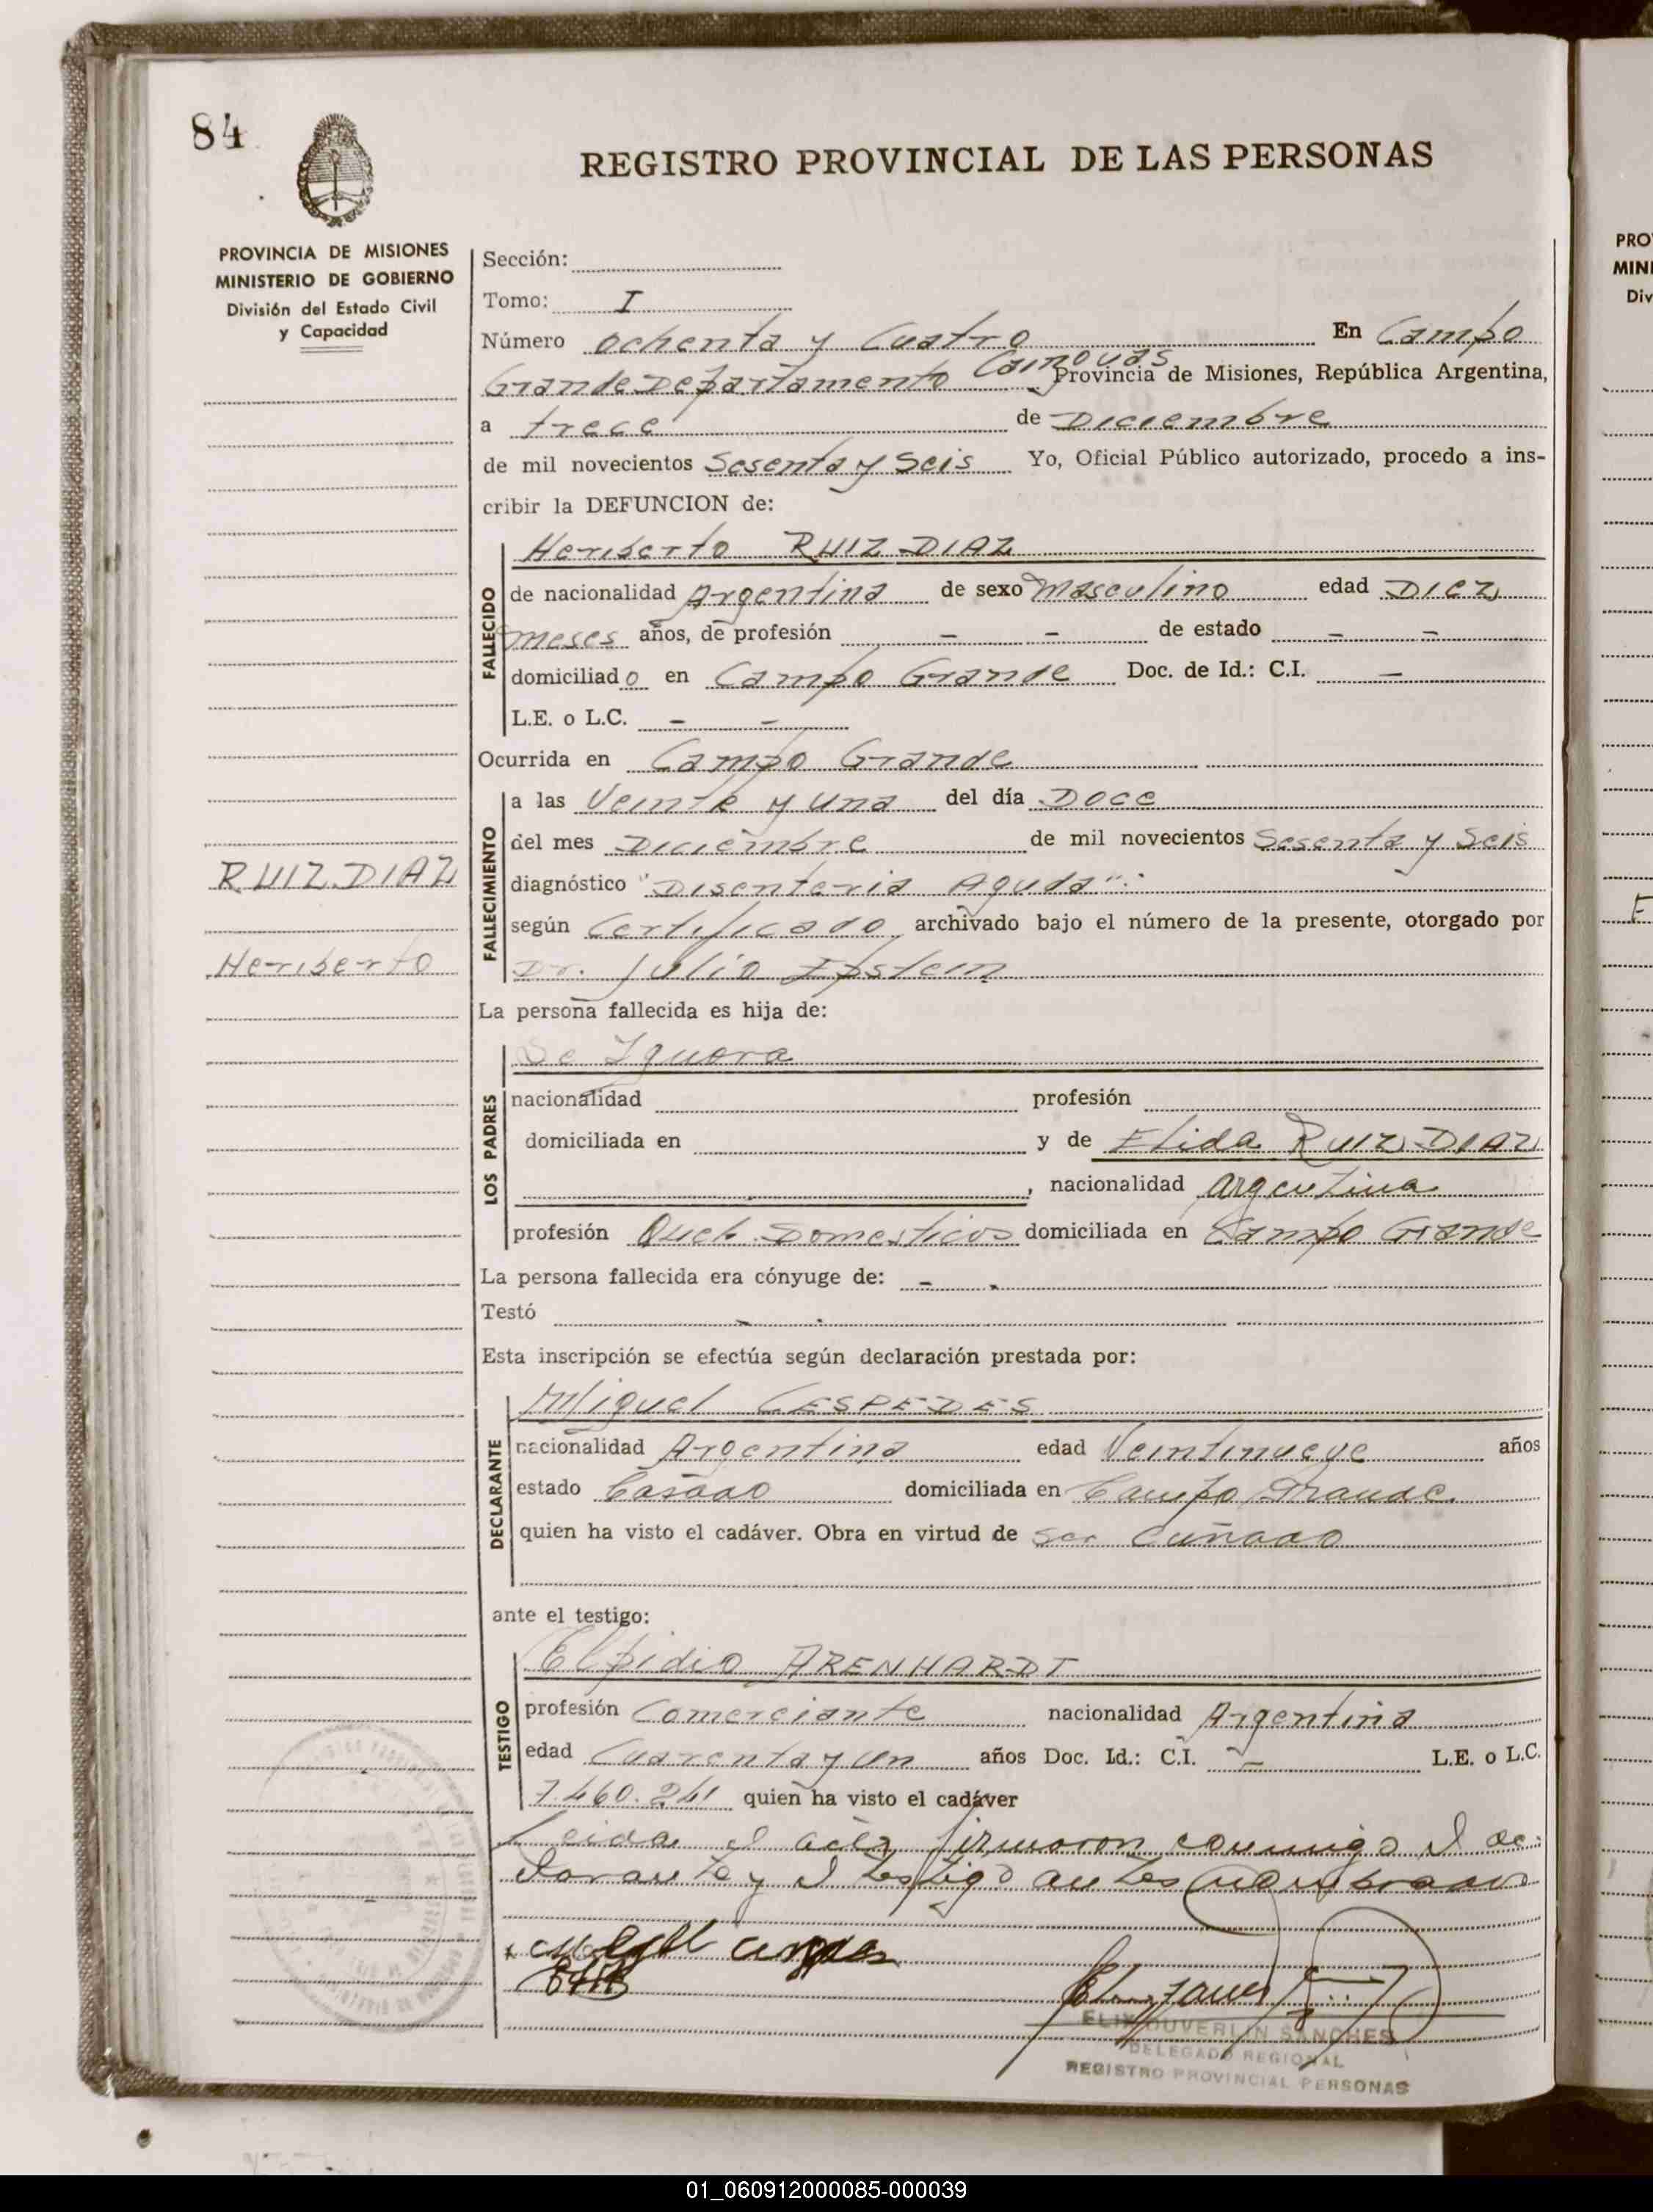 84
REGISTRO PROVINCIAL DE LAS PERSONAS
PROVINCIA DE MISIONES
MINISTERIO DE GOBIERNO
División del Estado Civil
y Capacidad
Sección:
Tomo: I
Número ochenta y Cuatro En Campo
Grande Departamento Cainguás Provincia de Misiones, República Argentina,
a trece de Diciembre
de mil novecientos Sesenta y Seis Yo, Oficial Público autorizado, procedo a ins-
cribir la DEFUNCION de:
Heriberto RUIZ DIAZ
FALLECIDO
de nacionalidad Argentina de sexo masculino edad Diez
meses años, de profesión - - de estado - -
domiciliado en Campo Grande Doc. de Id.: C.I. -
L.E. o L.C. - -
Ocurrida en Campo Grande
FALLECIMIENTO
a las Veinte y una del día Doce
del mes Diciembre de mil novecientos Sesenta y Seis
diagnóstico "Disenteria Aguda".
según Certificado archivado bajo el número de la presente, otorgado por
Dr. Julio Epstein
RUIZ DIAZ
Heriberto
La persona fallecida es hija de:
Se Ignora
LOS PADRES
nacionalidad profesión
domiciliada en y de Elida RUIZ DIAZ
, nacionalidad argentina
profesión Queh. Domesticos domiciliada en Campo Grande
La persona fallecida era cónyuge de: - .
Testó - .
Esta inscripción se efectúa según declaración prestada por:
Miguel CESPEDES
DECLARANTE
nacionalidad Argentina edad Veintinueve años
estado Casado domiciliada en Campo Grande.
quien ha visto el cadáver. Obra en virtud de ser Cuñado
ante el testigo:
Elpidio ARENHARDT
TESTIGO
profesión Comerciante nacionalidad Argentina
edad Cuarenta y un años Doc. Id.: C.I. - L.E. o L.C.
7.460.241 quien ha visto el cadáver
Leida el acta firmaron conmigo el de-
clarante y el testigo antes nombrados
SANCHES
DELEGADO REGIONAL
REGISTRO PROVINCIAL PERSONAS
PRO
MINI
Div
01_060912000085-000039